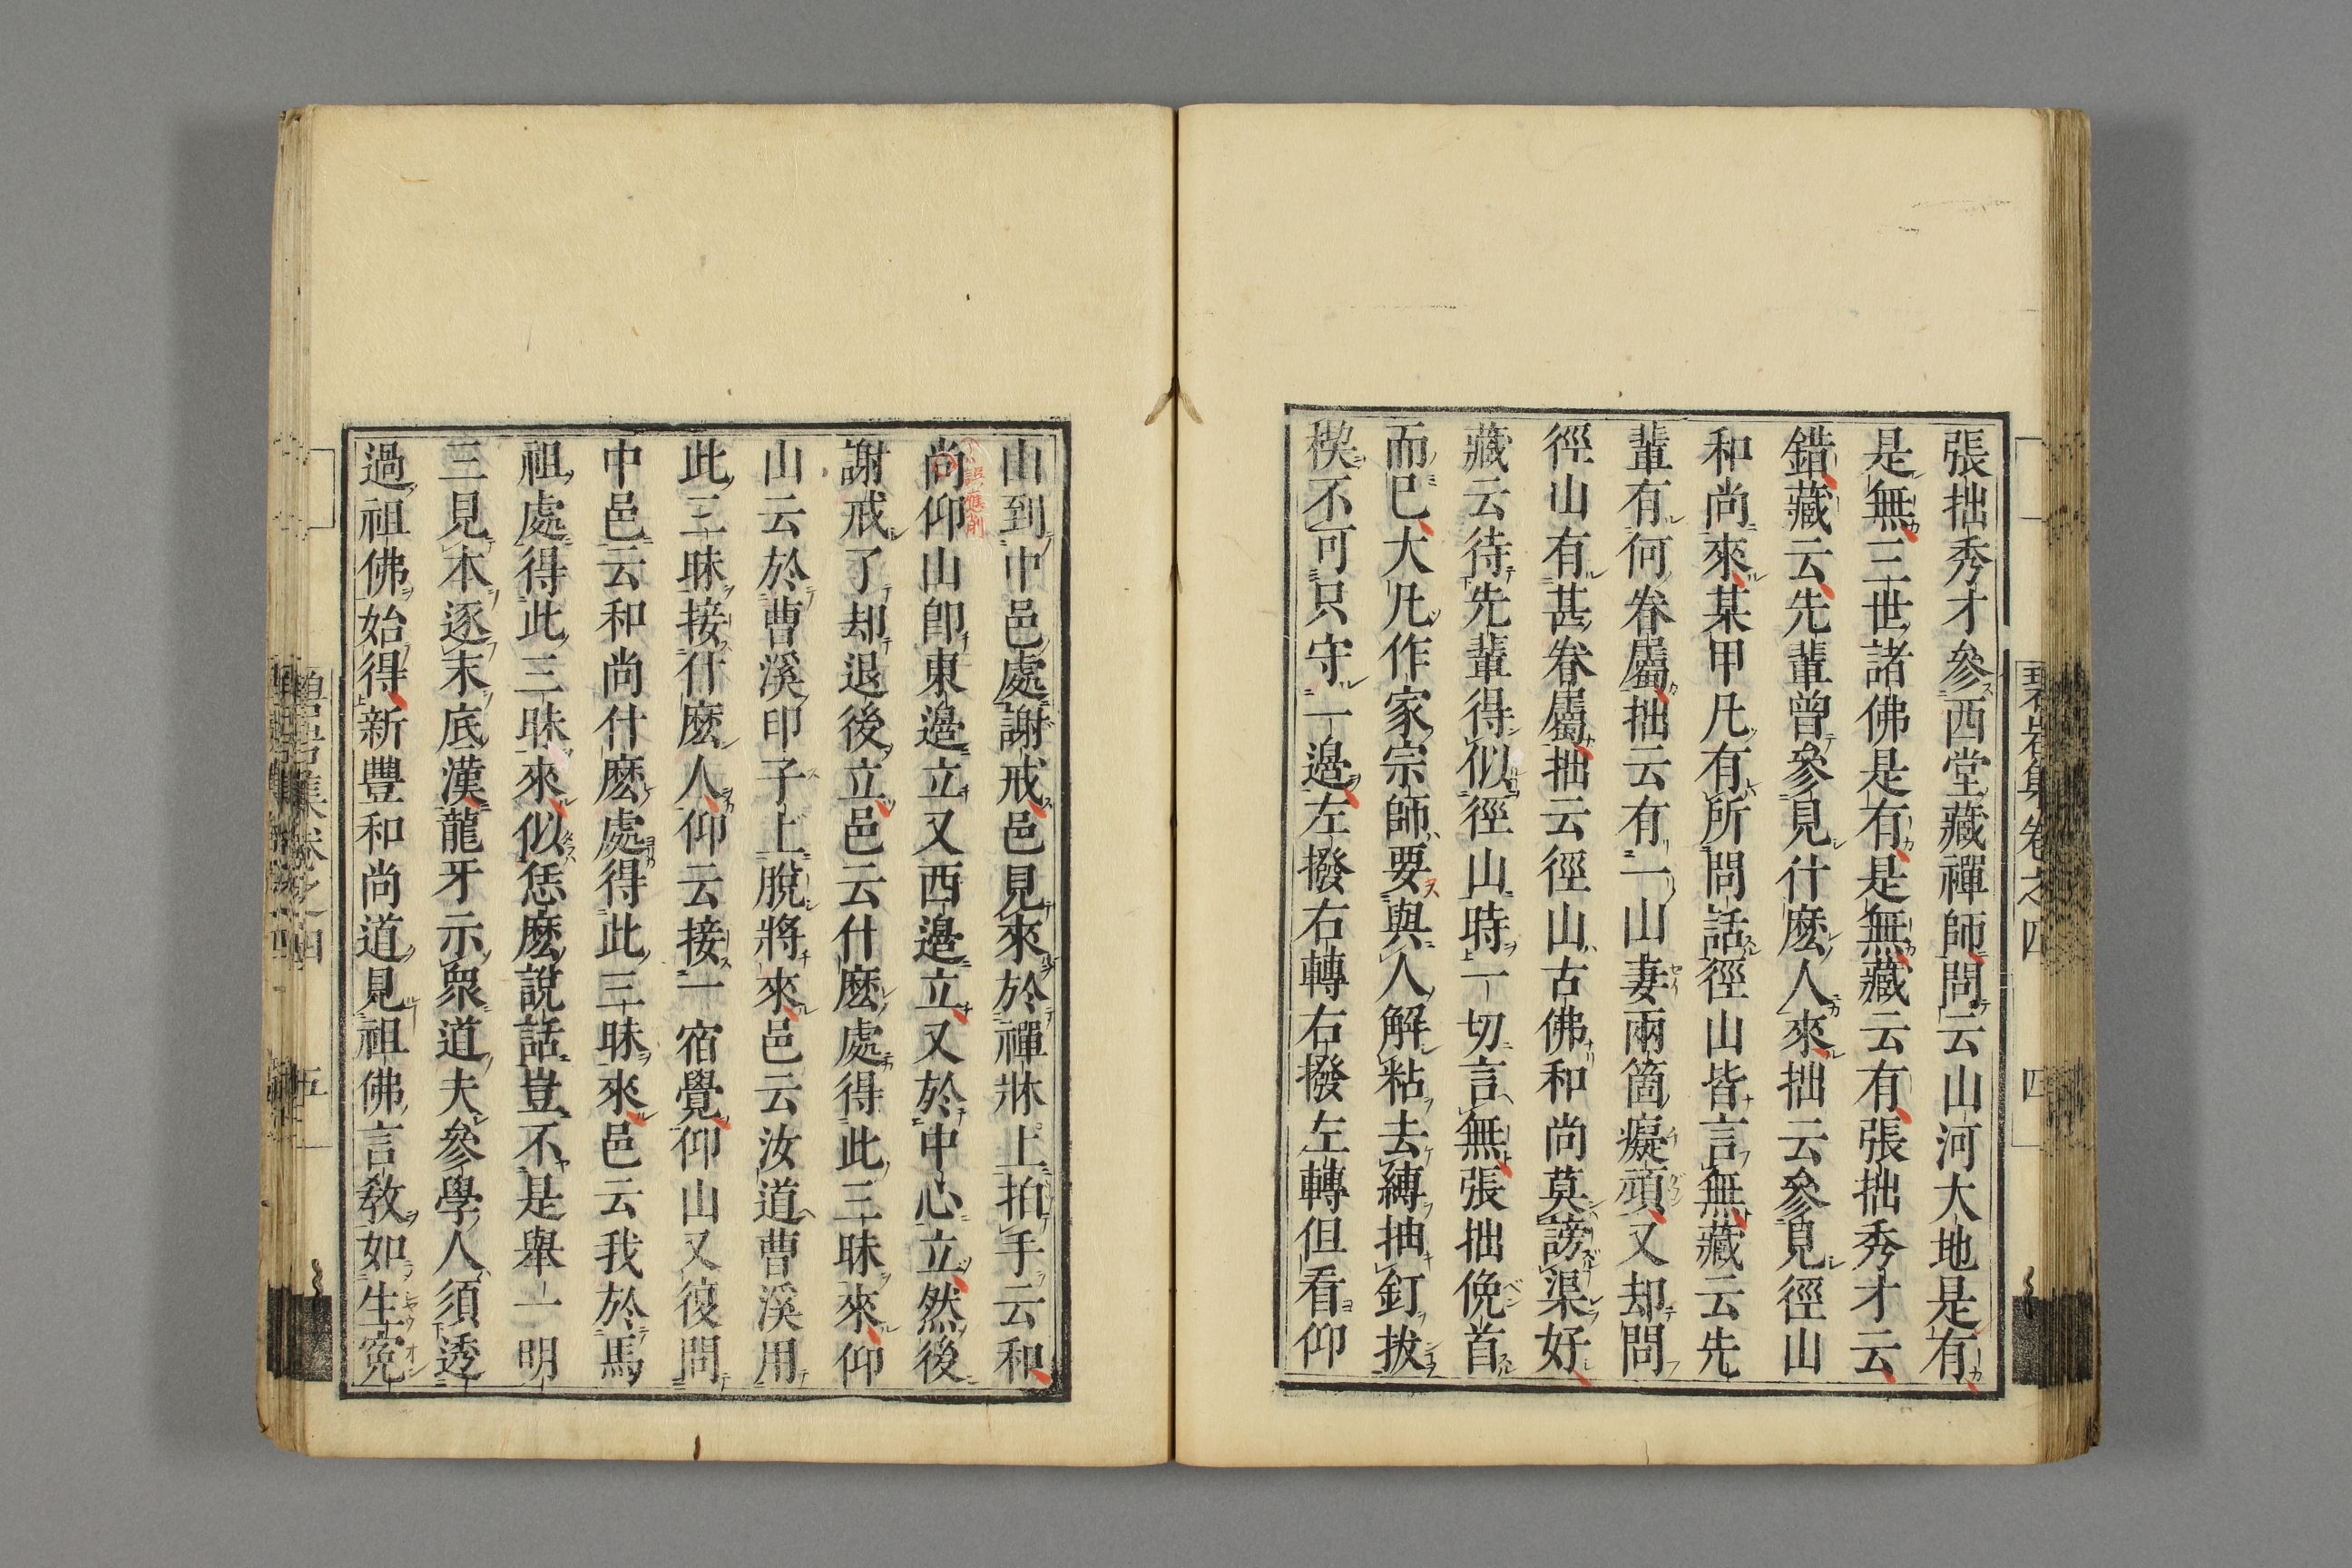 張拙秀才參西堂藏禪師問云山河大地是有
是無三世諸佛是有是無藏云有張拙秀才云
錯藏云先輩曾參見什麽人來拙云參見徑山
和尚來某甲凡有所問話徑山皆言無藏云先
輩有何眷屬拙云有一山妻兩箇癡頑又却問
徑山有甚眷屬拙云徑山古佛和尚莫謗渠好
藏云待先輩得似徑山時一切言無張拙俛首
而已大凡作家宗師要與人解粘去縛抽釘拔
楔不可只守一邊左撥右轉右撥左轉但看仰
碧岩集卷之四
四
山到中邑處謝戒邑見來於禪牀上拍手云和
尚仰山卽東邊立又西邊立又於中心立然後
謝戒了却退後立邑云什麽處得此三昧來仰
山云於曹溪印子上脫將來邑云汝道曹溪用
此三昧接什麽人仰云接一宿覺仰山又復問
中邑云和尚什麽處得此三昧來邑云我於馬
祖處得此三昧來似恁麽說話豈不是舉一明
三見本逐末底漢龍牙示衆道夫參學人須透
過祖佛始得新豐和尚道見祖佛言教如生冤
集卷之四
五